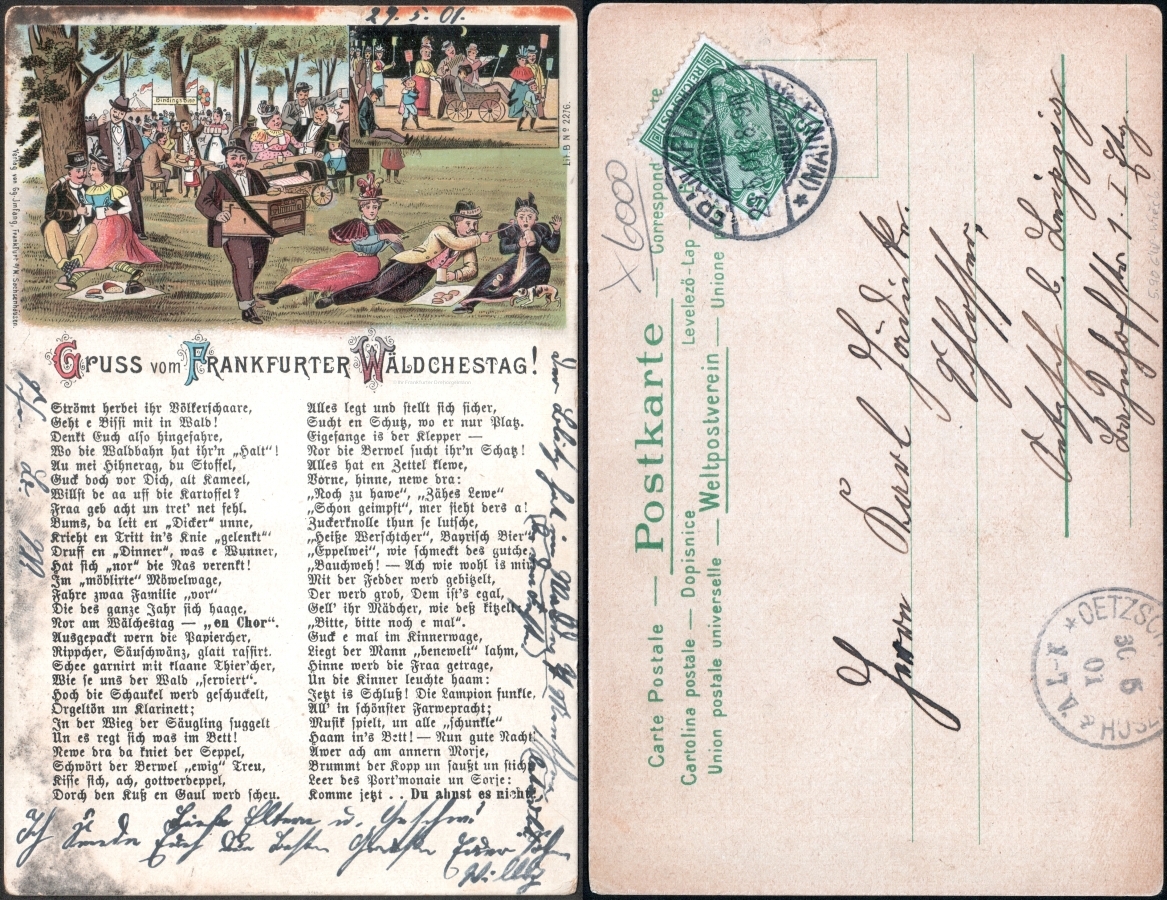 29.5.01.
Bindings Bier
Lit. B No 2276.
Verlag von Gg. Imfang, Frankfurt a/M. Sachsenhausen.
Gruss vom Frankfurter Wäldchestag!
Strömt herbei ihr Völkerschaare,
Geht e Bissi mit in Wald!
Denkt Euch also hingefahre,
Wo die Waldbahn hat ihr'n „Halt“!
Au mei Hihnerag, du Stoffel,
Guck doch vor Dich, alt Kameel,
Willst de aa uff die Kartoffel?
Fraa geb acht un tret' net fehl.
Bums, da leit en „Dicker“ unne,
Krieht en Tritt in's Knie „gelenkt“
Druff en „Dinner“, was e Wunner,
Hat sich „nor“ die Nas verenkt!
Im „möblirte“ Möwelwage,
Fahre zwaa Familie „vor“
Die des ganze Jahr sich haage,
Nor am Wälchestag — „en Chor“.
Ausgepackt wern die Papiercher,
Rippcher, Säuschwänz, glatt rassirt.
Schee garnirt mit klaane Thier'cher,
Wie se uns der Wald „serviert“.
Hoch die Schaukel werd geschuckelt,
Orgeltön un Klarinett;
In der Wieg der Säugling suggelt
Un es regt sich was im Bett!
Newe dra da kniet der Seppel,
Schwört der Berwel „ewig“ Treu,
Kisse sich, ach, gottverdeppel,
Dorch den Kuß en Gaul werd scheu.
Alles legt und stellt sich sicher,
Sucht en Schutz, wo er nur Platz.
Eigefange is der Klepper —
Nor die Berwel sucht ihr'n Schatz!
Alles hat en Zettel klewe,
Vorne, hinne, newe dra:
„Noch zu hawe“, „Zähes Lewe“
„Schon geimpft“, mer sieht ders a!
Zuckerknolle thun se lutsche,
„Heiße Werschtcher“, Bayrisch Bier“
„Eppelwei“, wie schmeckt des gutche
„Bauchweh! — Ach wie wohl is mir
Mit der Fedder werd gebitzelt,
Der werd grob, Dem ist's egal,
Gell' ihr Mädcher, wie deß kitzelt
„Bitte, bitte noch e mal“.
Guck e mal im Kinnerwage,
Liegt der Mann „benewelt“ lahm,
Hinne werd die Fraa getrage,
Un die Kinner leuchte haam:
Jetzt is Schluß! Die Lampion funkle,
All' in schönster Farwepracht;
Musik spielt, un alle „schunkle“
Haam in's Bett! — Nun gute Nacht!
Awer ach am annern Morje,
Brummt der Kopp un saußt un stich
Leer des Port'monaie un Sorje:
Komme jetzt . . Du ahnst es nicht
Ich sende Euch die besten Grüsse Euer Sohn
Liebe Eltern u. Geschw!
Willy
x 6000
Carte Postale — Postkarte — Correspond
Cartolina postale — Dopisnice Levelező-Lap —
Union postale universelle — Weltpostverein — Unione
REICHSPOST
FRANKFURT (MAIN)
Herrn Karl
Schlosser,
b. Leipzig
OETZSCH
30 5
01
1-7 V